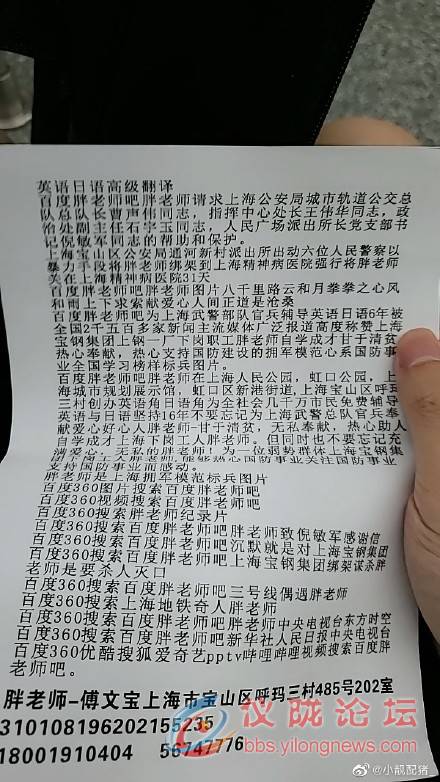 英语日语高级翻译
百度胖老师吧胖老师请求上海公安局城市轨道公交总
队总队长曹声伟同志，指挥中心处长王伟华同志，政
治处副主任石宇玉同志，人民广场派出所长党支部书
记倪敏军同志的帮助和保护。
上海宝山区公安局通河新村派出所出动六位人民警察以
暴力手段将胖老师绑架到上海精神病医院强行将胖老师
关在上海精神病医院31天
百度胖老师吧胖老师图片八千里路云和月拳拳之心风
和雨上下求索献爱心人间正道是沧桑
百度胖老师吧为上海武警部队官兵辅导英语日语6年被
全国2千五百多家新闻主流媒体广泛报道高度称赞上海
宝钢集团上钢一厂下岗职工胖老师自学成才甘于清贫
热心奉献，热心支持国防建设的拥军模范心系国防事
业全国学习榜样标兵图片。
百度胖老师吧胖老师在上海人民公园，虹口公园，上
海城市规划展示馆，虹口区新港街道，上海宝山区呼玛
三村创办英语角日语角为全社会几千万市民免费辅导
英语与日语坚持16年不要忘记为上海武警总队官兵奉
献爱心好心人胖老师-甘于清贫，无私奉献，热心助人
自学成才上海下岗工人胖老师。但同时也不要忘记充
满爱心，无私的胖老师！为一位弱势群体上海宝钢集
团下岗工人胖老师能够热心国防事业关注国防事业
支持国防事业而感动。
胖老师是上海拥军模范标兵图片
百度360图片搜索百度胖老师吧
百度360视频搜索百度胖老师吧
百度360搜索胖老师纪录片
百度360搜索百度胖老师吧胖老师致倪敏军感谢信
百度360搜索百度胖老师吧沉默就是对上海宝钢集团
百度360搜索百度胖老师吧上海宝钢集团绑架谋杀胖
老师是要杀人灭口
百度360搜索百度胖老师吧三号线偶遇胖老师
百度360搜索上海地铁奇人胖老师
百度360搜索百度胖老师吧胖老师中央电视台东方时空
百度360搜索百度胖老师吧新华社人民日报中央电视台
百度360优酷搜狐爱奇艺pptv哔哩哔哩视频搜索百度胖
老师吧。
胖老师-傅文宝上海市宝山区呼玛三村485号202室
310108196202155235
18001910404 56747776
仪陇论坛
bbs.yilongnews.com
@小靓配猪